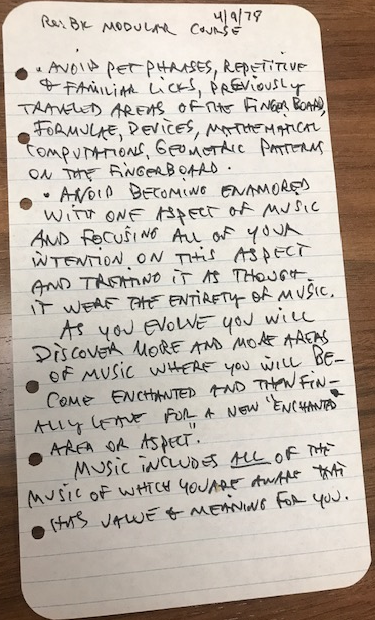 Re: BK MODULAR COURSE 4/9/78
• AVOID PET PHRASES, REPETITIVE
& FAMILIAR LICKS, PREVIOUSLY
TRAVELED AREAS OF THE FINGERBOARD,
FORMULAE, DEVICES, MATHEMATICAL
COMPUTATIONS, GEOMETRIC PATTERNS
ON THE FINGERBOARD.
• AVOID BECOMING ENAMORED
WITH ONE ASPECT OF MUSIC
AND FOCUSING ALL OF YOUR
INTENTION ON THIS ASPECT
AND TREATING IT AS THOUGH
IT WERE THE ENTIRETY OF MUSIC.
AS YOU EVOLVE YOU WILL
DISCOVER MORE AND MORE AREAS
OF MUSIC WHERE YOU WILL BE-
COME ENCHANTED AND THEN FIN-
ALLY LEAVE FOR A NEW "ENCHANTED
AREA OR ASPECT."
MUSIC INCLUDES ALL OF THE
MUSIC OF WHICH YOU ARE AWARE THAT
HAS VALUE & MEANING FOR YOU.